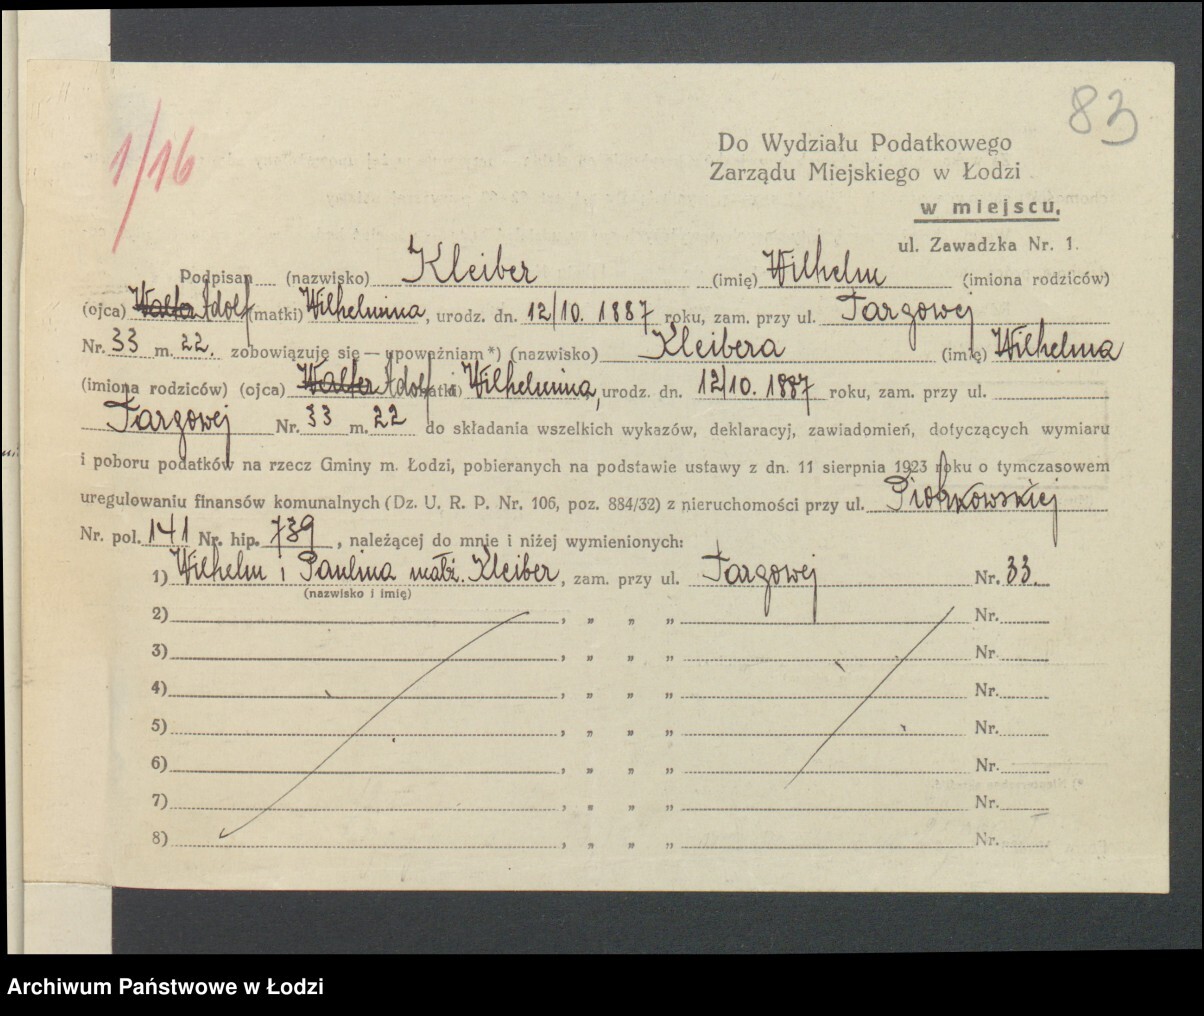 83
1/16
Do Wydziału Podatkowego
Zarządu Miejskiego w Łodzi
w miejscu,
ul. Zawadzka Nr. 1.
Podpisan (nazwisko) Kleiber (imię) Wilhelm (imiona rodziców)
(ojca) Walter Adolf (matki) Wilhelmina, urodz. dn. 12/10. 1887 roku, zam. przy ul. Targowej
Nr. 33 m. 22. zobowiązuję się — upoważniam *) (nazwisko) Kleibera (imię) Wilhelma
(imiona rodziców) (ojca) Walter Adolf i (matki) Wilhelmina, urodz. dn. 12/10. 1887 roku, zam. przy ul.
Targowej Nr. 33 m. 22 do składania wszelkich wykazów, deklaracyj, zawiadomień, dotyczących wymiaru
i poboru podatków na rzecz Gminy m. Łodzi, pobieranych na podstawie ustawy z dn. 11 sierpnia 1923 roku o tymczasowem
uregulowaniu finansów komunalnych (Dz. U. R. P. Nr. 106, poz. 884/32) z nieruchomości przy ul. Piotrkowskiej
Nr. pol. 141 Nr. hip. 739, należącej do mnie i niżej wymienionych:
1) Wilhelm i Paulina małż. Kleiber, zam. przy ul. Targowej Nr. 33.
(nazwisko i imię)
2) , „ „ „ Nr.
3) , „ „ „ Nr.
4) , „ „ „ Nr.
5) , „ „ „ Nr.
6) , „ „ „ Nr.
7) , „ „ „ Nr.
8) , „ „ „ Nr.
Archiwum Państwowe w Łodzi